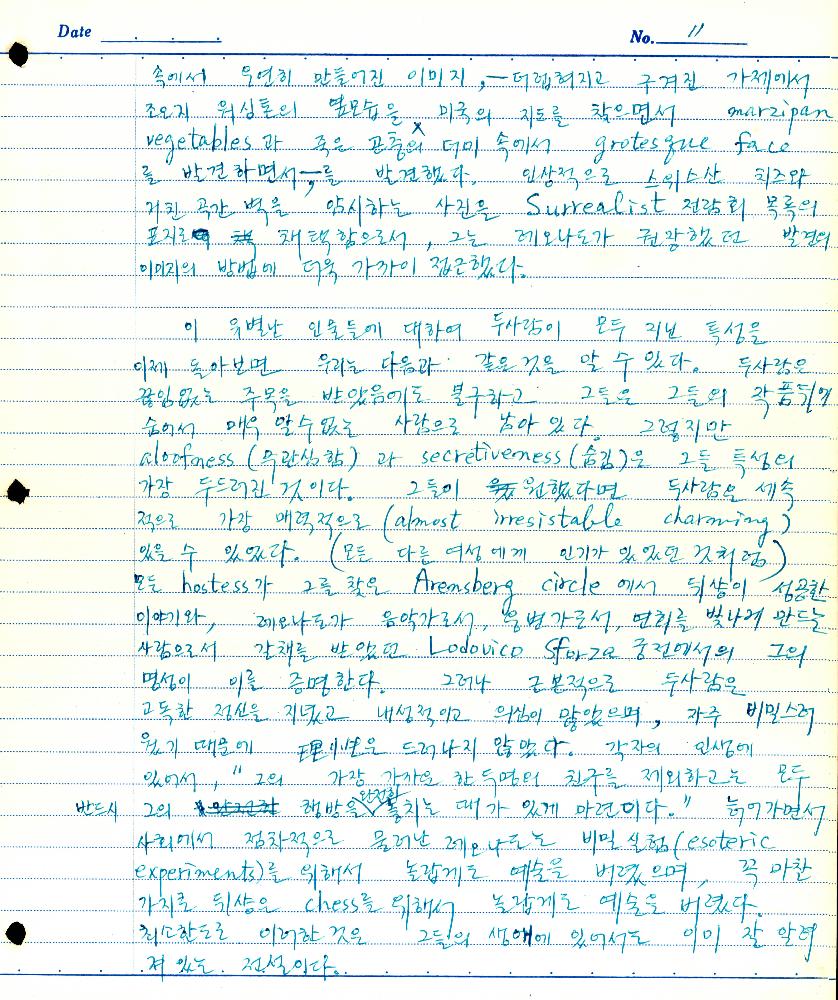 Date
No. 11
속에서 우연히 만들어진 이미지, — 더렵혀지고 구겨진 가제에서
조오지 워싱톤의 옆모습을 x 미국의 지도를 찾으면서 marzipan
vegetables과 죽은 곤충의 더미 속에서 grotesque face
를 발견하면서 — 를 발견했다. 인상적으로 스위스산 치즈와
거친 곡간 벽을 암시하는 사진을 Surrealist 전람회 목록의
표지로 채택함으로서, 그는 레오나도가 권장했던 발견의
이미지의 방법에 더욱 가까이 접근했다.
이 유별난 인물들에 대하여 두사람이 모두 지닌 특성을
이제 돌아보면 우리는 다음과 같은 것을 알 수 있다. 두사람은
끊임없는 주목을 받았음에도 불구하고 그들은 그들의 작품뒤에
숨어서 매우 알수없는 사람으로 남아 있다. 그렇지만
aloofness (무관심함) 과 secretiveness (숨김)은 그들 특성의
가장 두드러진 것이다. 그들이 원했다면 두사람은 세속
적으로 가장 매력적으로 (almost irresistable charming)
있을 수 있었다. (모든 다른 여성에게 인기가 있었던 것처럼)
모든 hostess가 그를 찾은 Arensberg circle에서 뒤샹이 성공한
이야기와, 레오나도가 음악가로서, 웅변가로서, 연회를 빛나게 만드는
사람으로서 갈채를 받았던 Lodovico Sforza 궁전에서의 그의
명성이 이를 증명한다. 그러나 근본적으로 두사람은
고독한 정신을 지녔고 내성적이고 의심이 많았으며, 자주 비밀스러
웠기 때문에 理性은 드러나지 않았다. 각자의 인생에
있어서, "그의 가장 가까운 한두명의 친구를 제외하고는 모두
반드시 그의 행방을 완전히 놓치는 때가 있게 마련이다." 늙어가면서
사회에서 점차적으로 물러난 레오나도는 비밀 실험 (esoteric
experiments)를 위해서 놀랍게도 예술을 버렸으며, 꼭 마찬
가지로 뒤샹은 chess를 위해서 놀랍게도 예술을 버렸다.
최소한도로 이러한 것은 그들의 생애에 있어서도 이미 잘 알려
져 있는 전설이다.